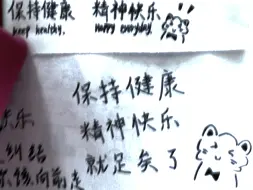 保持健康 精神快乐
keep healthy. Happy everyday.
保持健康
精神快乐
就足矣了
乐
纠结
该向前走